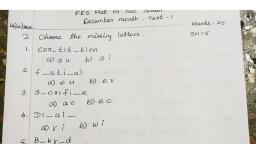 PES Mat Hr Sec School
December month - Test - 1
Marks: 25
I Choose the missing letters. 5x1=5
1. Con_tit_tion
a) s u b) s i
2. f_sti_al
a) e u b) e v
3. S_crifi_e
a) a c b) e c
4. Di_al_
a) v i b) w i
5. B_kv_d